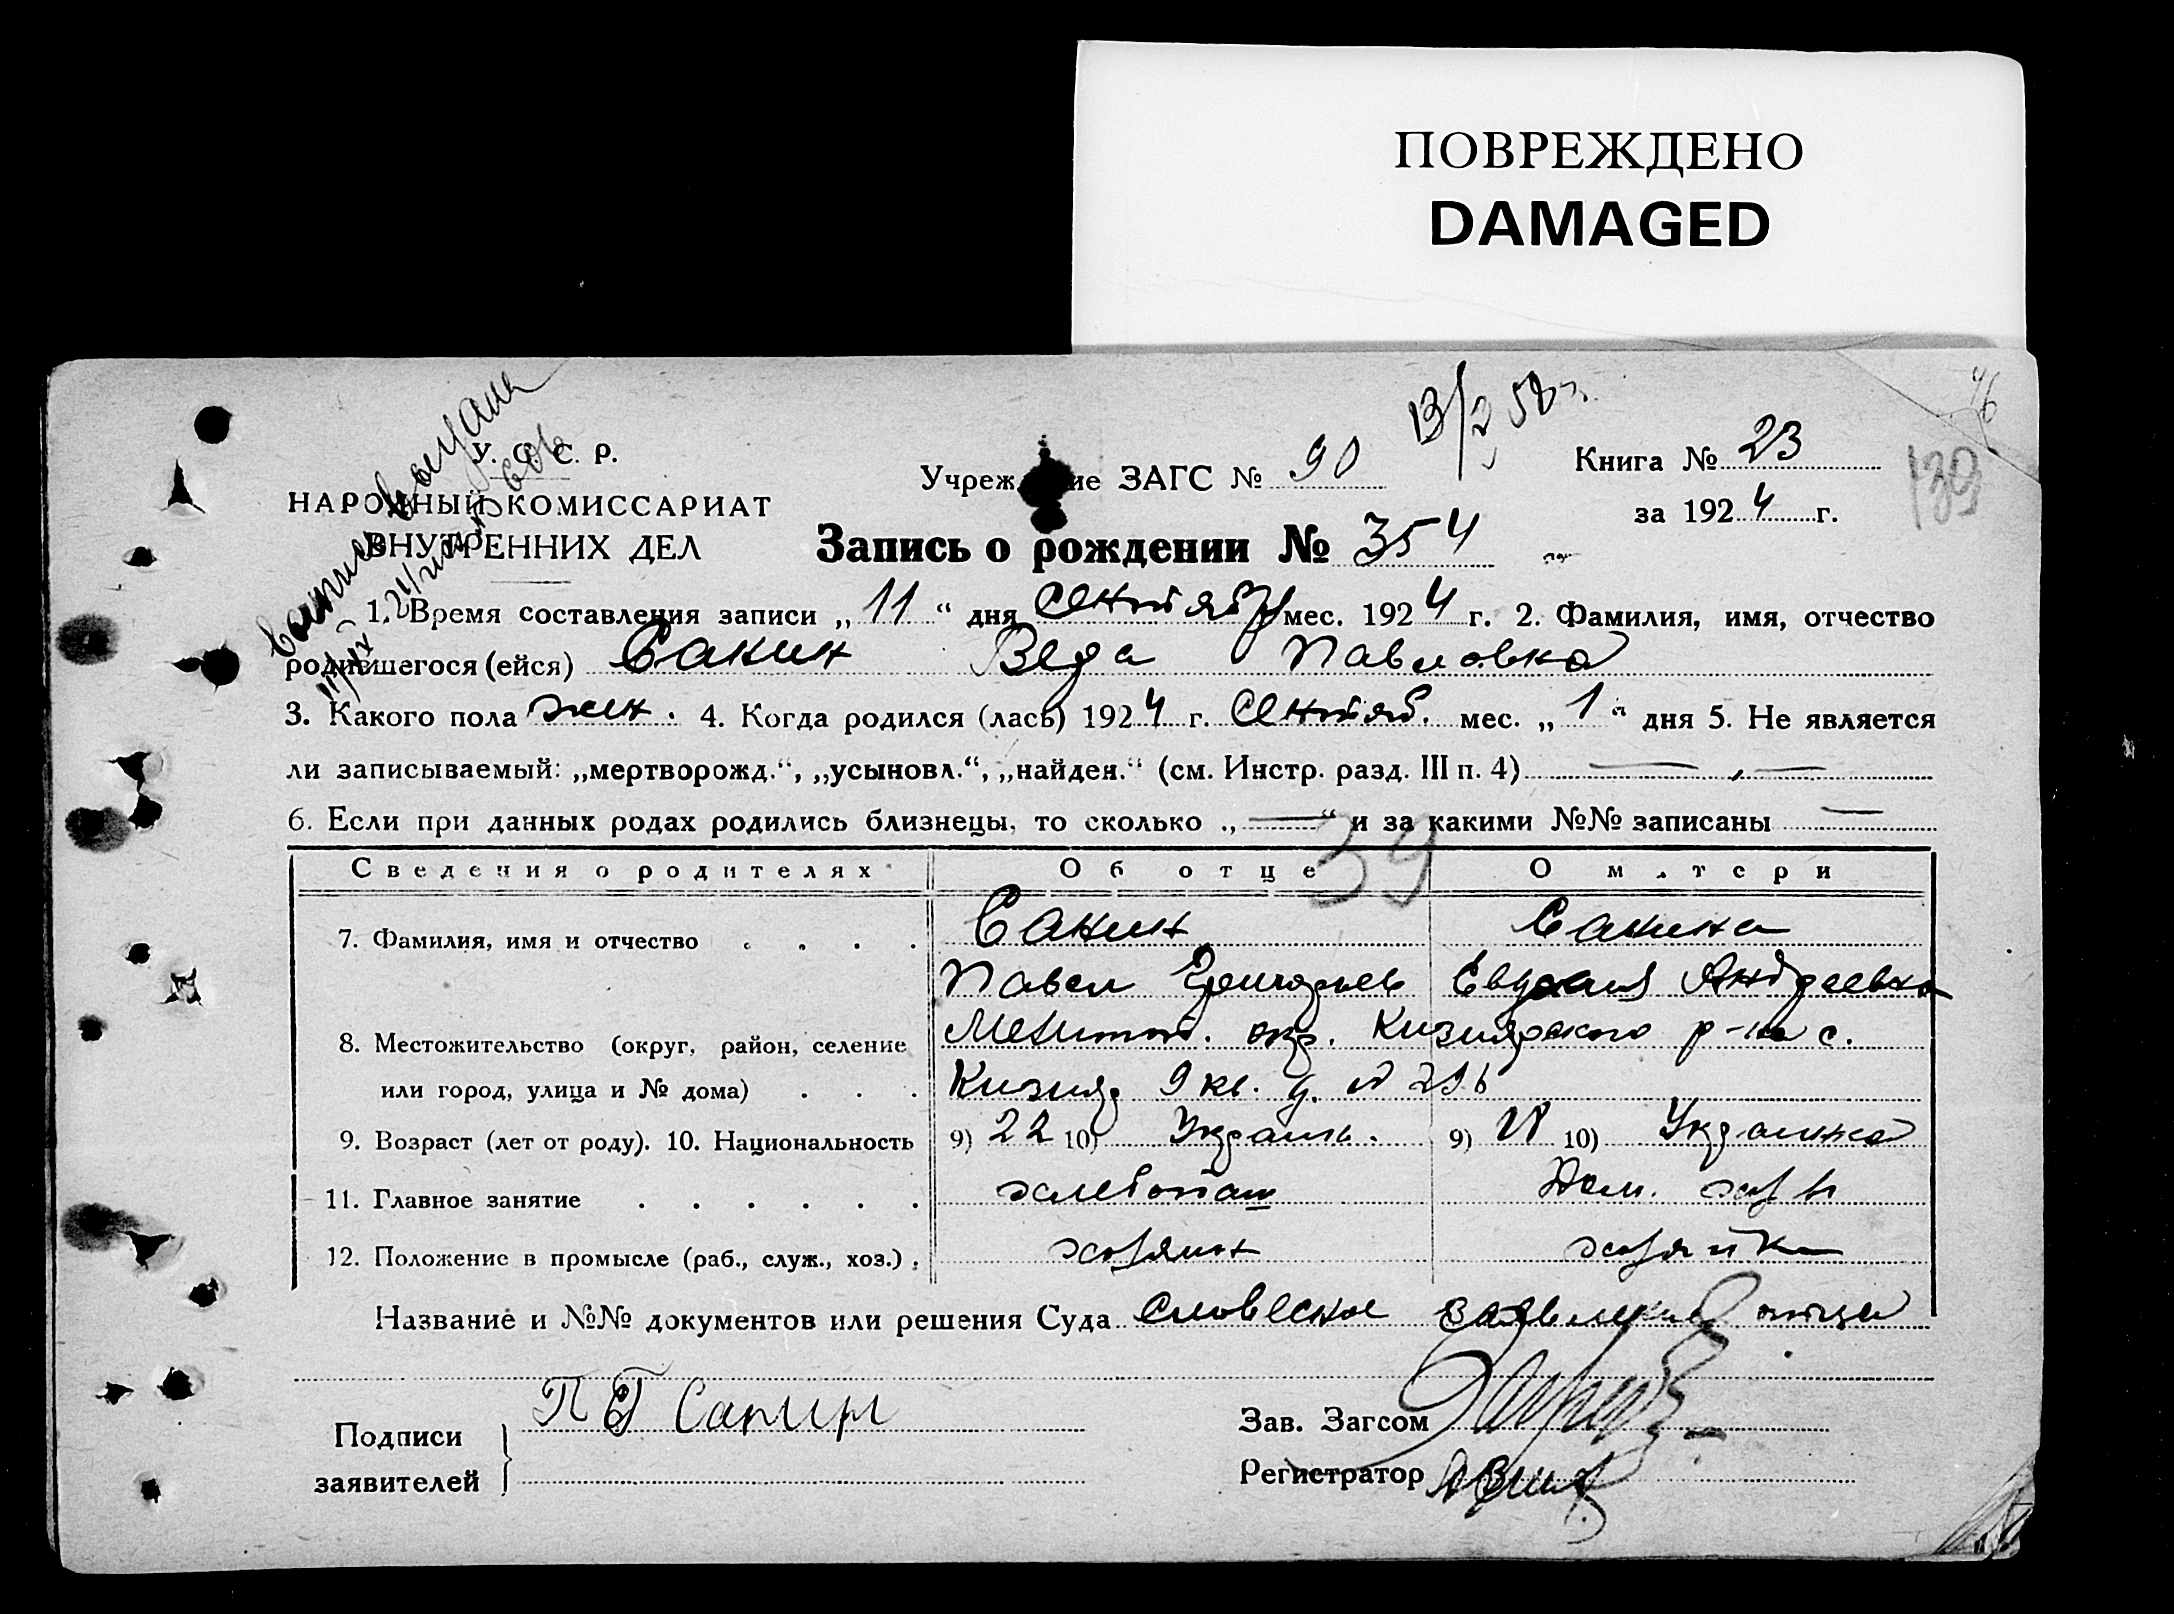 ПОВРЕЖДЕНО
DAMAGED
13/2 58 г.
46
139
У. С. С. Р.
НАРОДНЫЙ КОМИССАРИАТ
ВНУТРЕННИХ ДЕЛ
Учреж ие ЗАГС № 90
Книга № 23
за 1924 г.
Запись о рождении № 354
1. Время составления записи „11“ дня Сентября мес. 1924 г. 2. Фамилия, имя, отчество
родившегося (ейся) Сакин Вера Павловна
3. Какого пола жен. 4. Когда родился (лась) 1924 г. Сентяб. мес. „1“ дня 5. Не является
ли записываемый: „мертворожд.“, „усыновл.“, „найден.“ (см. Инстр. разд. III п. 4) — , —
6. Если при данных родах родились близнецы, то сколько „—“ и за какими №№ записаны —
39
Сведения о родителях Об отце О м.тери
7. Фамилия, имя и отчество . . . . Сакин Сакина
Павел Григорьев Евдокия Андреевна
8. Местожительство (округ, район, селение Мелитоп. окр. Кизиярского р-на с.
или город, улица и № дома) . . . Кизияр 9 кв. д. № 296
9. Возраст (лет от роду). 10. Национальность 9) 22 10) Украин. 9) 21 10) Украинка
11. Главное занятие . . . . . . хлебопаш Дом. хоз в
12. Положение в промысле (раб., служ., хоз.) . хозяин хозяйка
Название и №№ документов или решения Суда Словесное заявление отца
Подписи
заявителей
П Г Сакин
Зав. Загсом
Регистратор